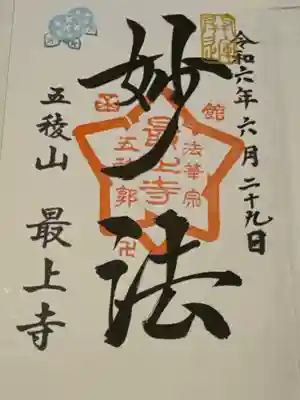 令和六年六月二十九日
妙法
五稜山 最上寺
函館
五稜郭
最上寺
法華宗